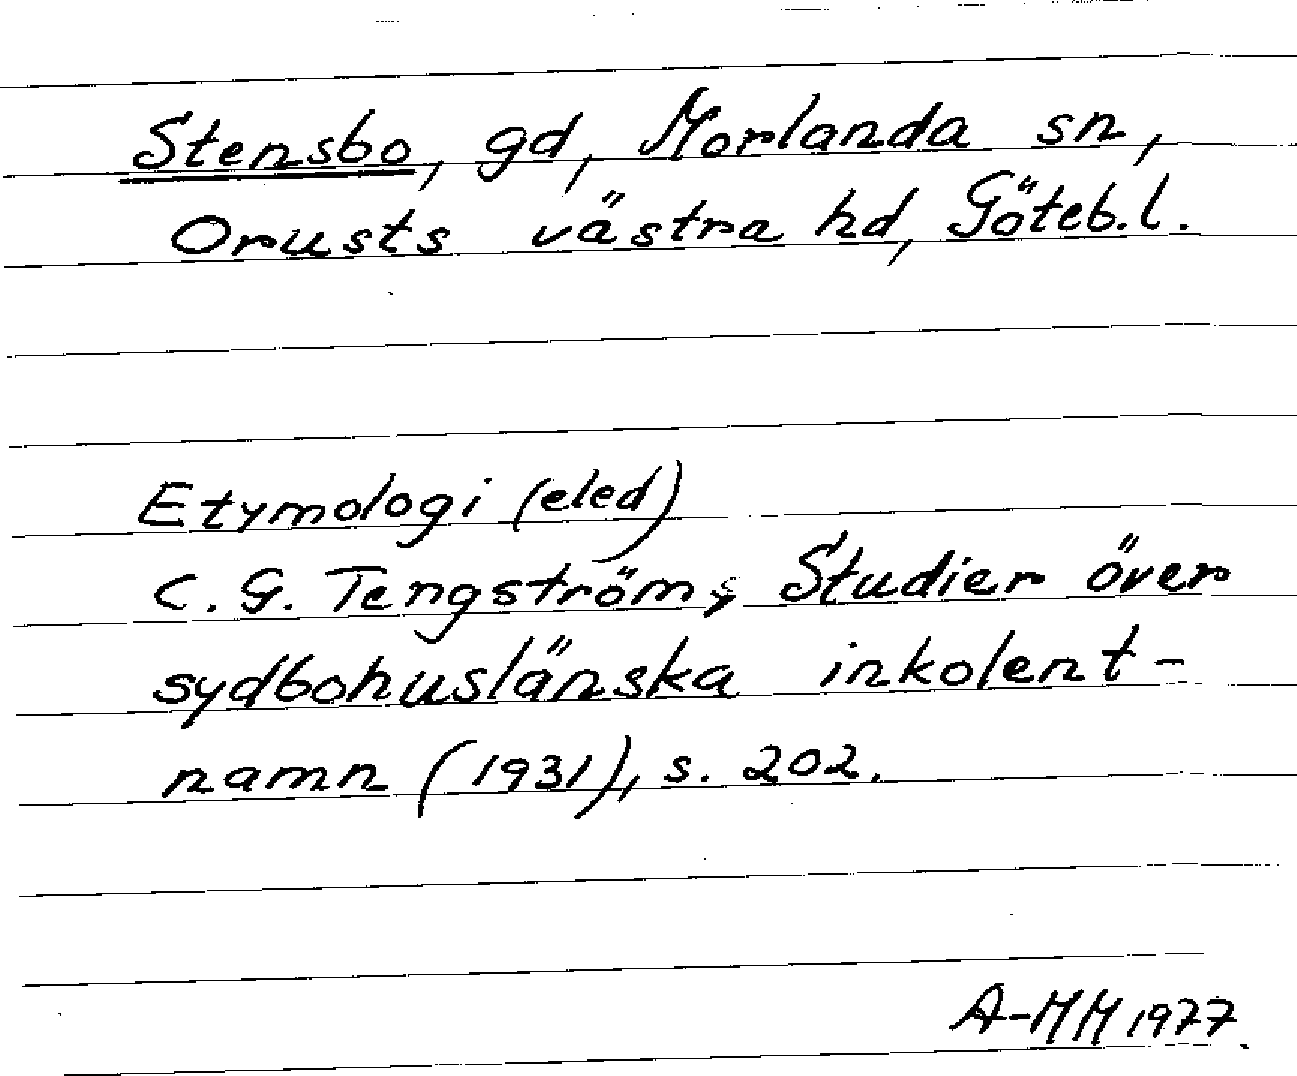 Stensbo, gd, Morlanda sn,
Orusts västra hd, Göteb.l.
Etymologi (eled)
C. G. Tengström, Studier över
sydbohuslänska inkolent-
namn (1931), s. 202.
A-MM 1977.